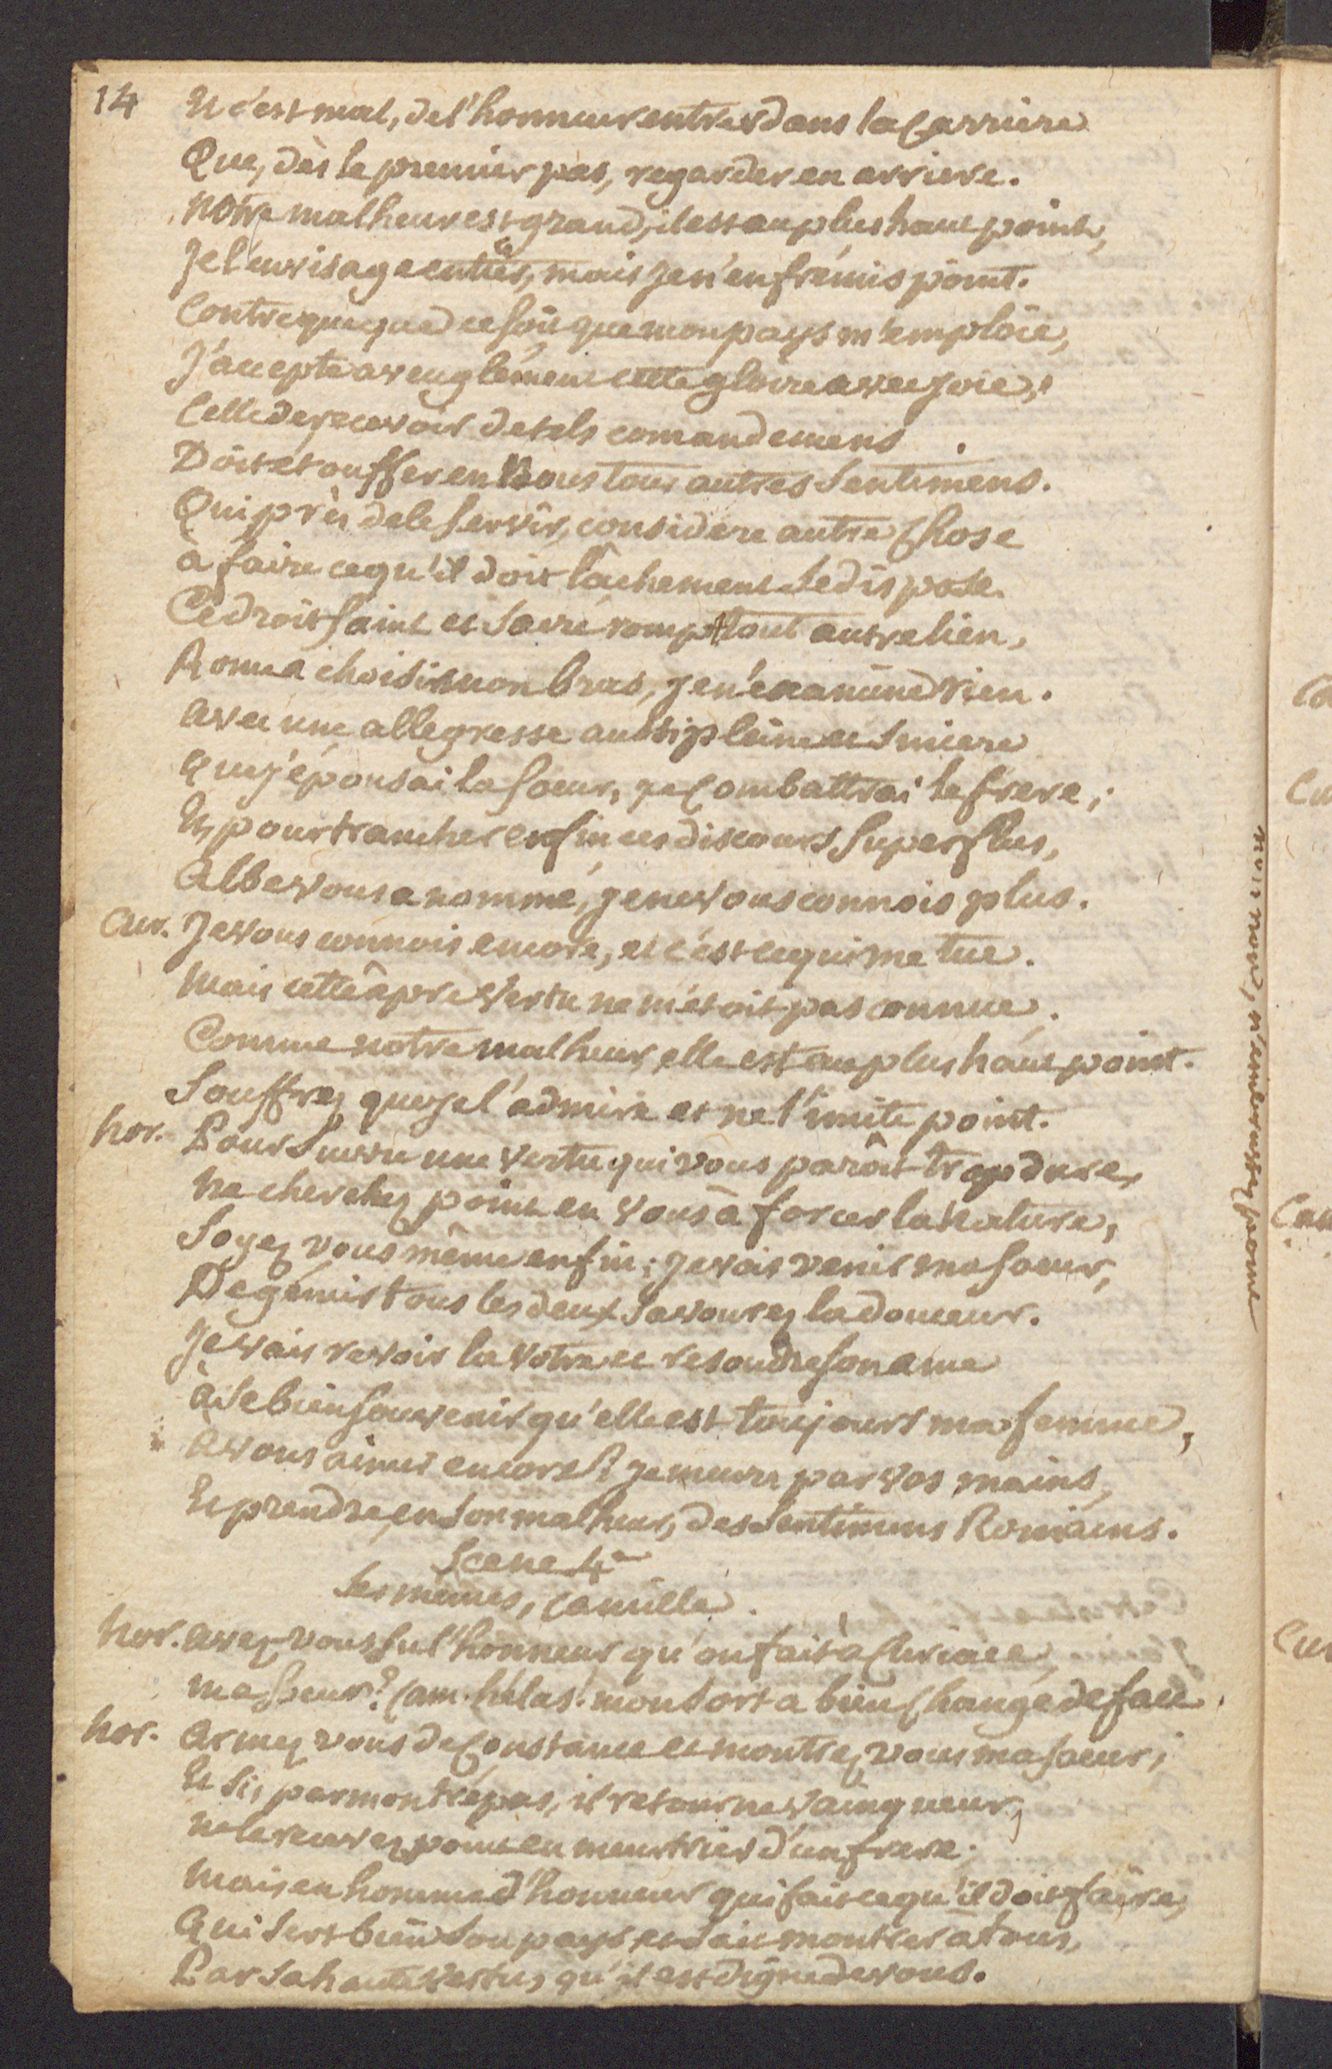 14 Et c'est mal, de l'honneur entrer dans la Carriere
Que, dès le premier pas, regarder en arriere.
notre malheur est grand, il est au plus haut point,
Je l'envisage entier, mais Je n'en frémis point.
Contre qui que ce soit que mon pays m'emploie,
J'accepte aveuglément cette gloire avec joie;
Celle de recevoir de tels comandemens
Doit etouffer en nous tous autres sentimens.
Qui près de le servir, considere autre Chose
à faire ce qu'il doit lâchement se dispose
Ce droit saint et sacré rompt tout autre lien,
Rome a choisi mon bras, je n'examine rien.
avec une allegresse aussi pleine et sincere
que j'épousai la soeur, je Combattrai le frere;
Et, pour trancher enfin ces discours superflus,
Albe vous a nommé, je ne vous connois plus.
Cur. Je vous connois encore, et c'est ce qui me tue.
mais cette âpre vertu ne m'étoit pas connue,
Comme notre malheur, elle est au plus haut point.
Souffrez que je l'admire et ne l'imite point.
hor. Pour suivre une vertu qui vous parôit trop dure,
ne cherchez point en vous à forcer la Nature,
Soyez vous même enfin; je vois venir ma soeur,
De gémir tous les deux savourez la douceur.
Je vais revoir la votre et resoudre son ame
à se bien souvenir qu'elle est toujours ma femme,
a vous aimer encore si je meurs par vos mains,
Et prendre, en son malheur, des sentimens Romains.
Scene 4e
Les memes, Camille.
hor. avez-vous su l'honneur qu'on fait à Curiace,
ma soeur? Cam. hélas! mon sort a bien Changé de face.
hor. armez vous de Constance et montrez vous ma soeur;
Et si, par mon trépas, il retourne vainqueur,
ne le recevez point en meurtrier d'un frere.
mais en homme d'honneur qui fait ce qu'il doit faire,
qui sert bien son pays et sait montrer à tous,
Par sa haute vertu, qu'il est digne de vous.
Cu
Cur